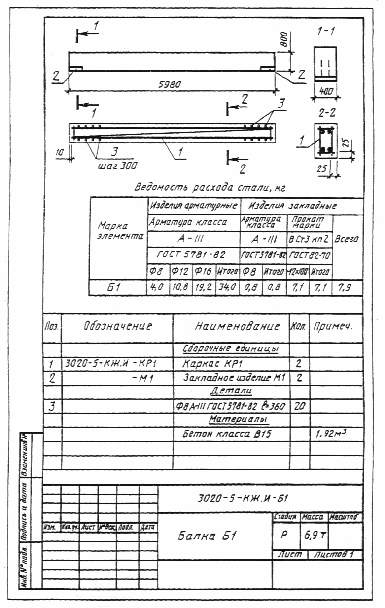 1
1-1
800
2
2
5980
1
2
3
400
2-2
1
10
3
шаг 300
1
2
25
25
Ведомость расхода стали, кг
Марка элемента
Изделия арматурные
Изделия закладные
Всего
Арматура класса
Арматура класса
Прокат марки
А-III
А-III
ВСт3 кп2
ГОСТ 5781-82
ГОСТ 5781-82
ГОСТ 82-70
Ф8 Ф12 Ф16 Итого Ф8 Итого Итого
Б1 4,0 10,8 19,2 34,0 0,8 0,8 7,1 7,1 7,9
Поз. Обозначение Наименование Кол. Примеч.
Сборочные единицы
1 3020-5-КЖ.И-КР1 Каркас КР1 2
2 -М1 Закладное изделие М1 2
Детали
3 Ф8 А-III ГОСТ 5781-82 ℓ=360 20
Материалы
Бетон класса В15 1,92м³
3020-5-КЖ.И-Б1
Изм. Кол.уч. Лист №док. Подп. Дата
Балка Б1
Стадия Масса Масштаб
Р 6,9 т
Лист Листов 1
Взамен инв.№
Подпись и дата
Инв.№ подл.